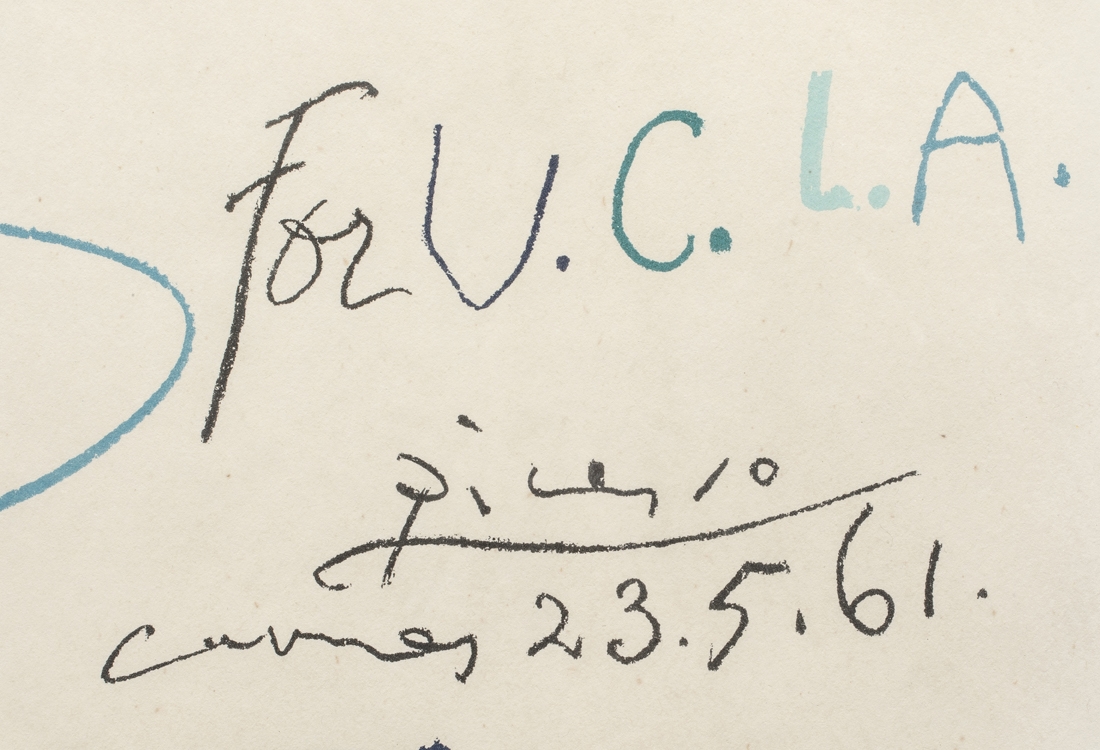 For U.C.L.A.
Picasso
Cannes 23.5.61.